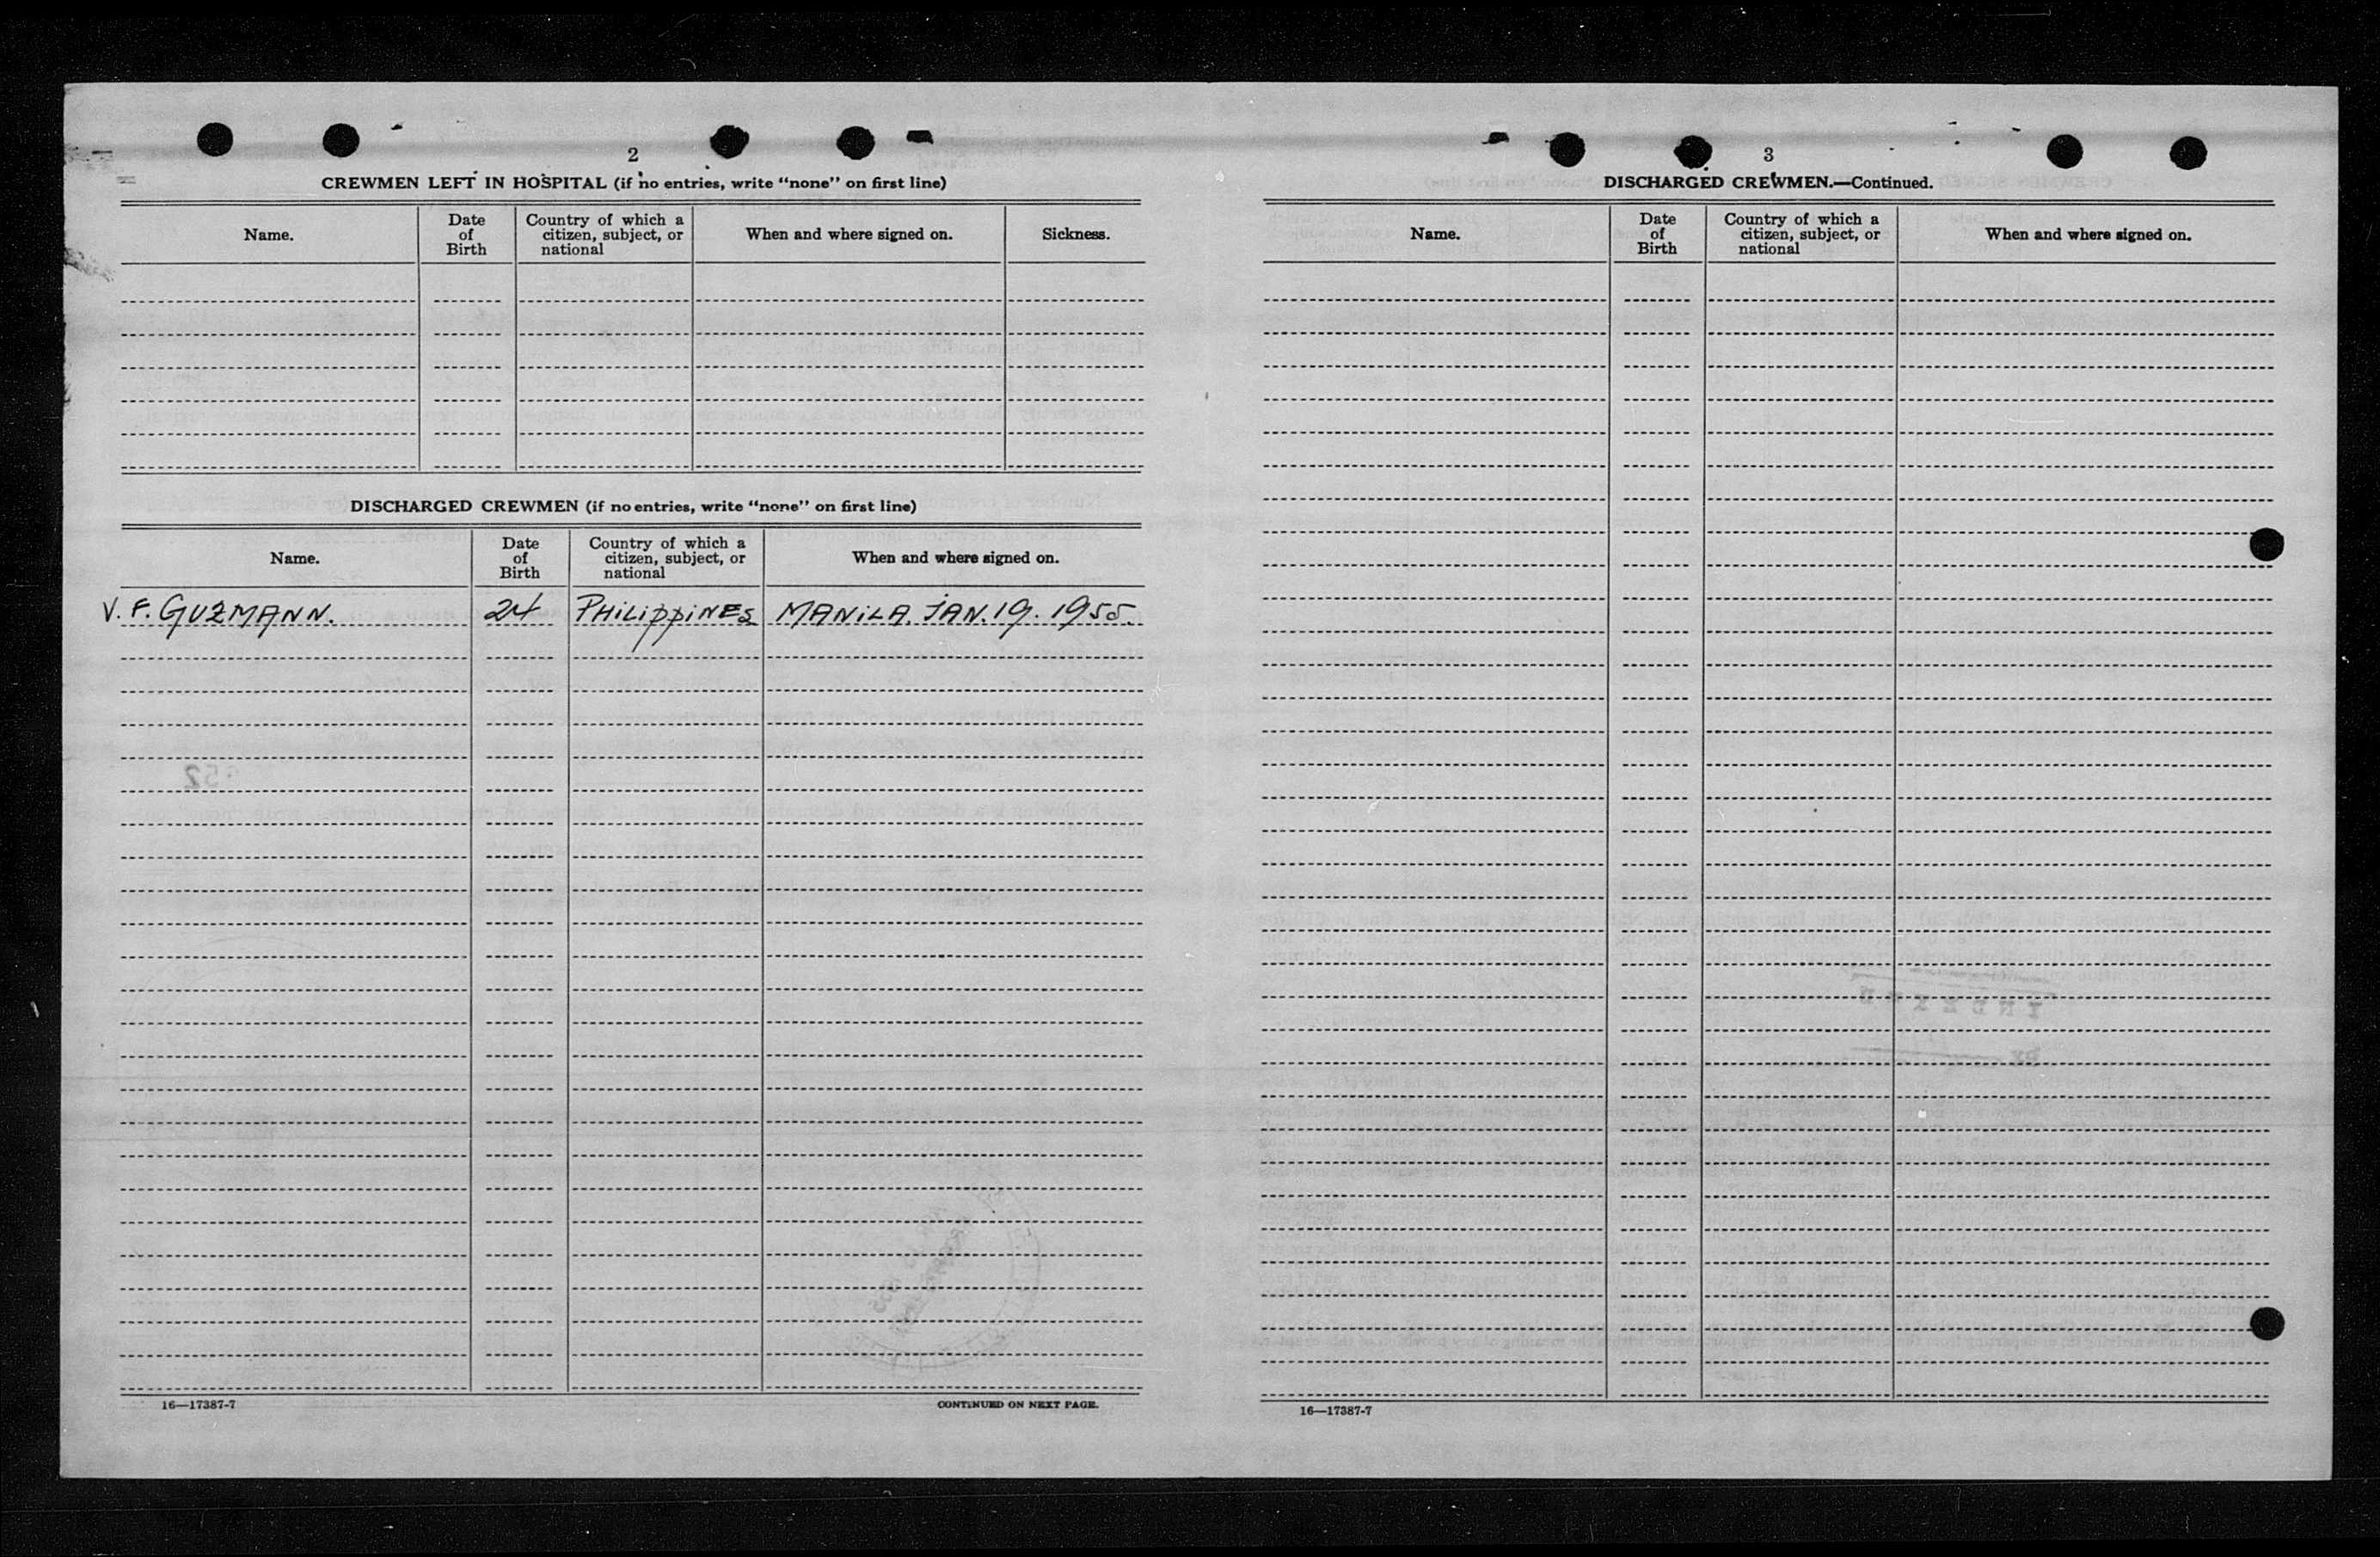 2
CREWMEN LEFT IN HOSPITAL (if no entries, write "none" on first line)
Name.
Date of Birth
Country of which a citizen, subject, or national
When and where signed on.
Sickness.
DISCHARGED CREWMEN (if no entries, write "none" on first line)
Name.
Date of Birth
Country of which a citizen, subject, or national
When and where signed on.
V. F. GUZMANN. 24 PHILIPPINES MANILA. JAN. 19. 1955.
16—17387-7
CONTINUED ON NEXT PAGE.
3
DISCHARGED CREWMEN.—Continued.
Name.
Date of Birth
Country of which a citizen, subject, or national
When and where signed on.
16—17387-7